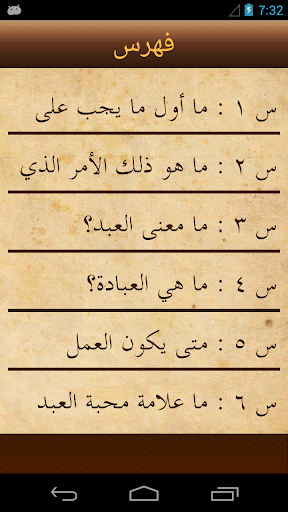 7:32
فهرس
س ١ : ما أول ما يجب على
س ٢ : ما هو ذلك الأمر الذي
س ٣ : ما معنى العبد؟
س ٤ : ما هي العبادة؟
س ٥ : متى يكون العمل
س ٦ : ما علامة محبة العبد